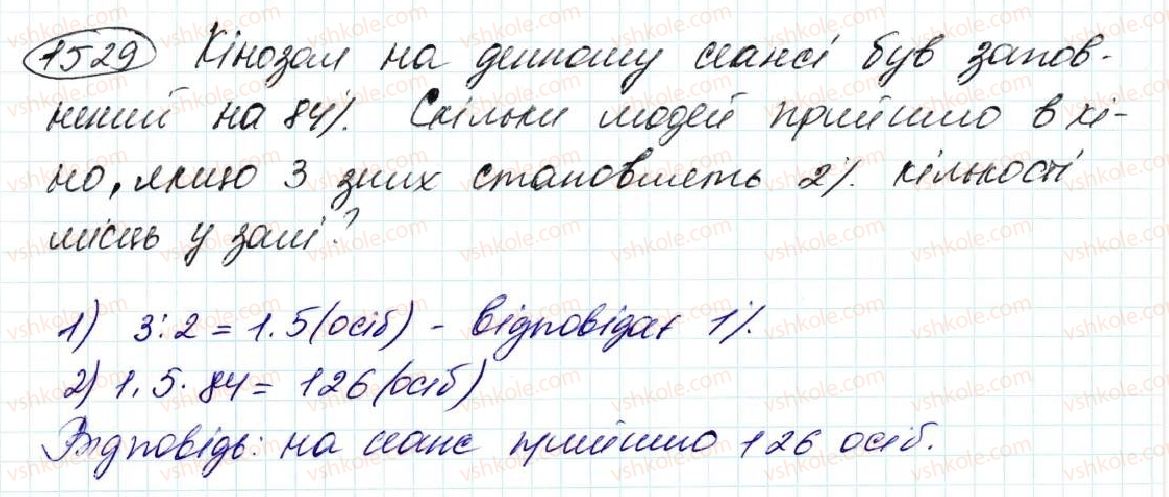 1529 Кінозал на денному сеансі був запов-
нений на 84%. Скільки людей прийшло в кі-
но, якщо 3 з них становлять 2% кількості
місць у залі?
1) 3:2=1.5(осіб) - відповідає 1%.
2) 1.5·84=126(осіб)
Відповідь: на сеанс прийшло 126 осіб.